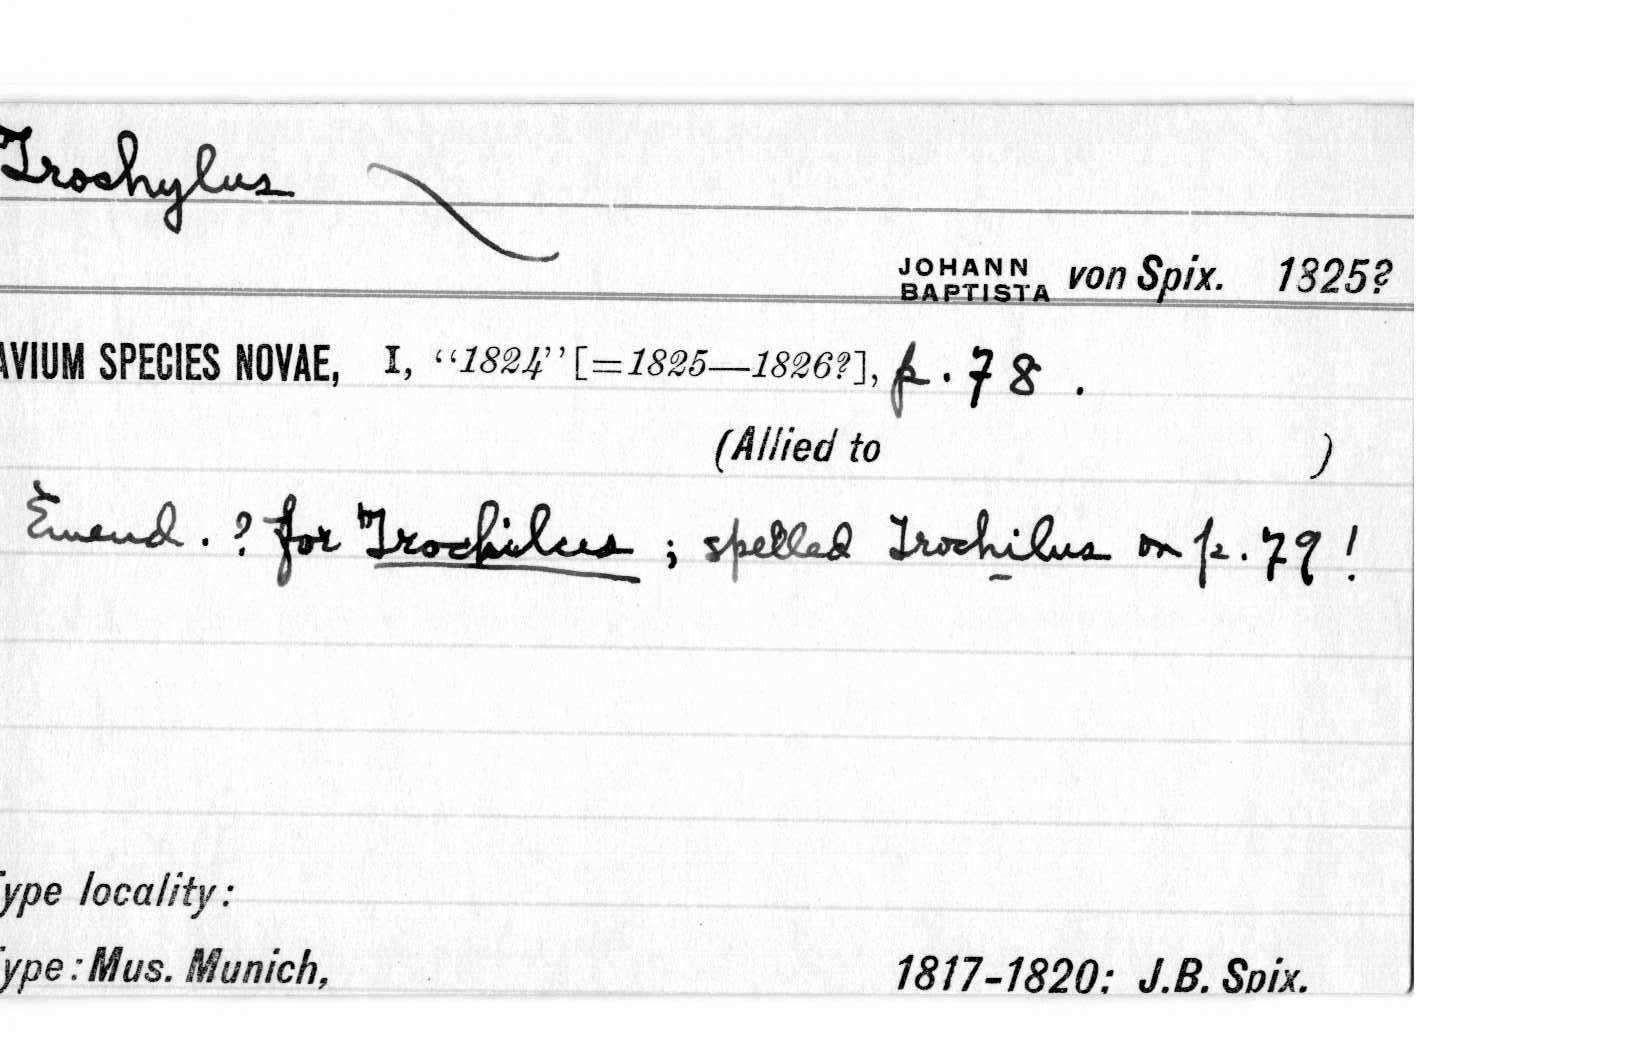 Trochylus
JOHANN BAPTISTA von Spix. 1825?
AVIUM SPECIES NOVAE, I, “1824” [=1825—1826?], p. 78 .
(Allied to )
Emend. ? for Trochilus ; spelled Trochilus on p. 79 !
Type locality:
Type: Mus. Munich, 1817-1820; J.B. Spix.